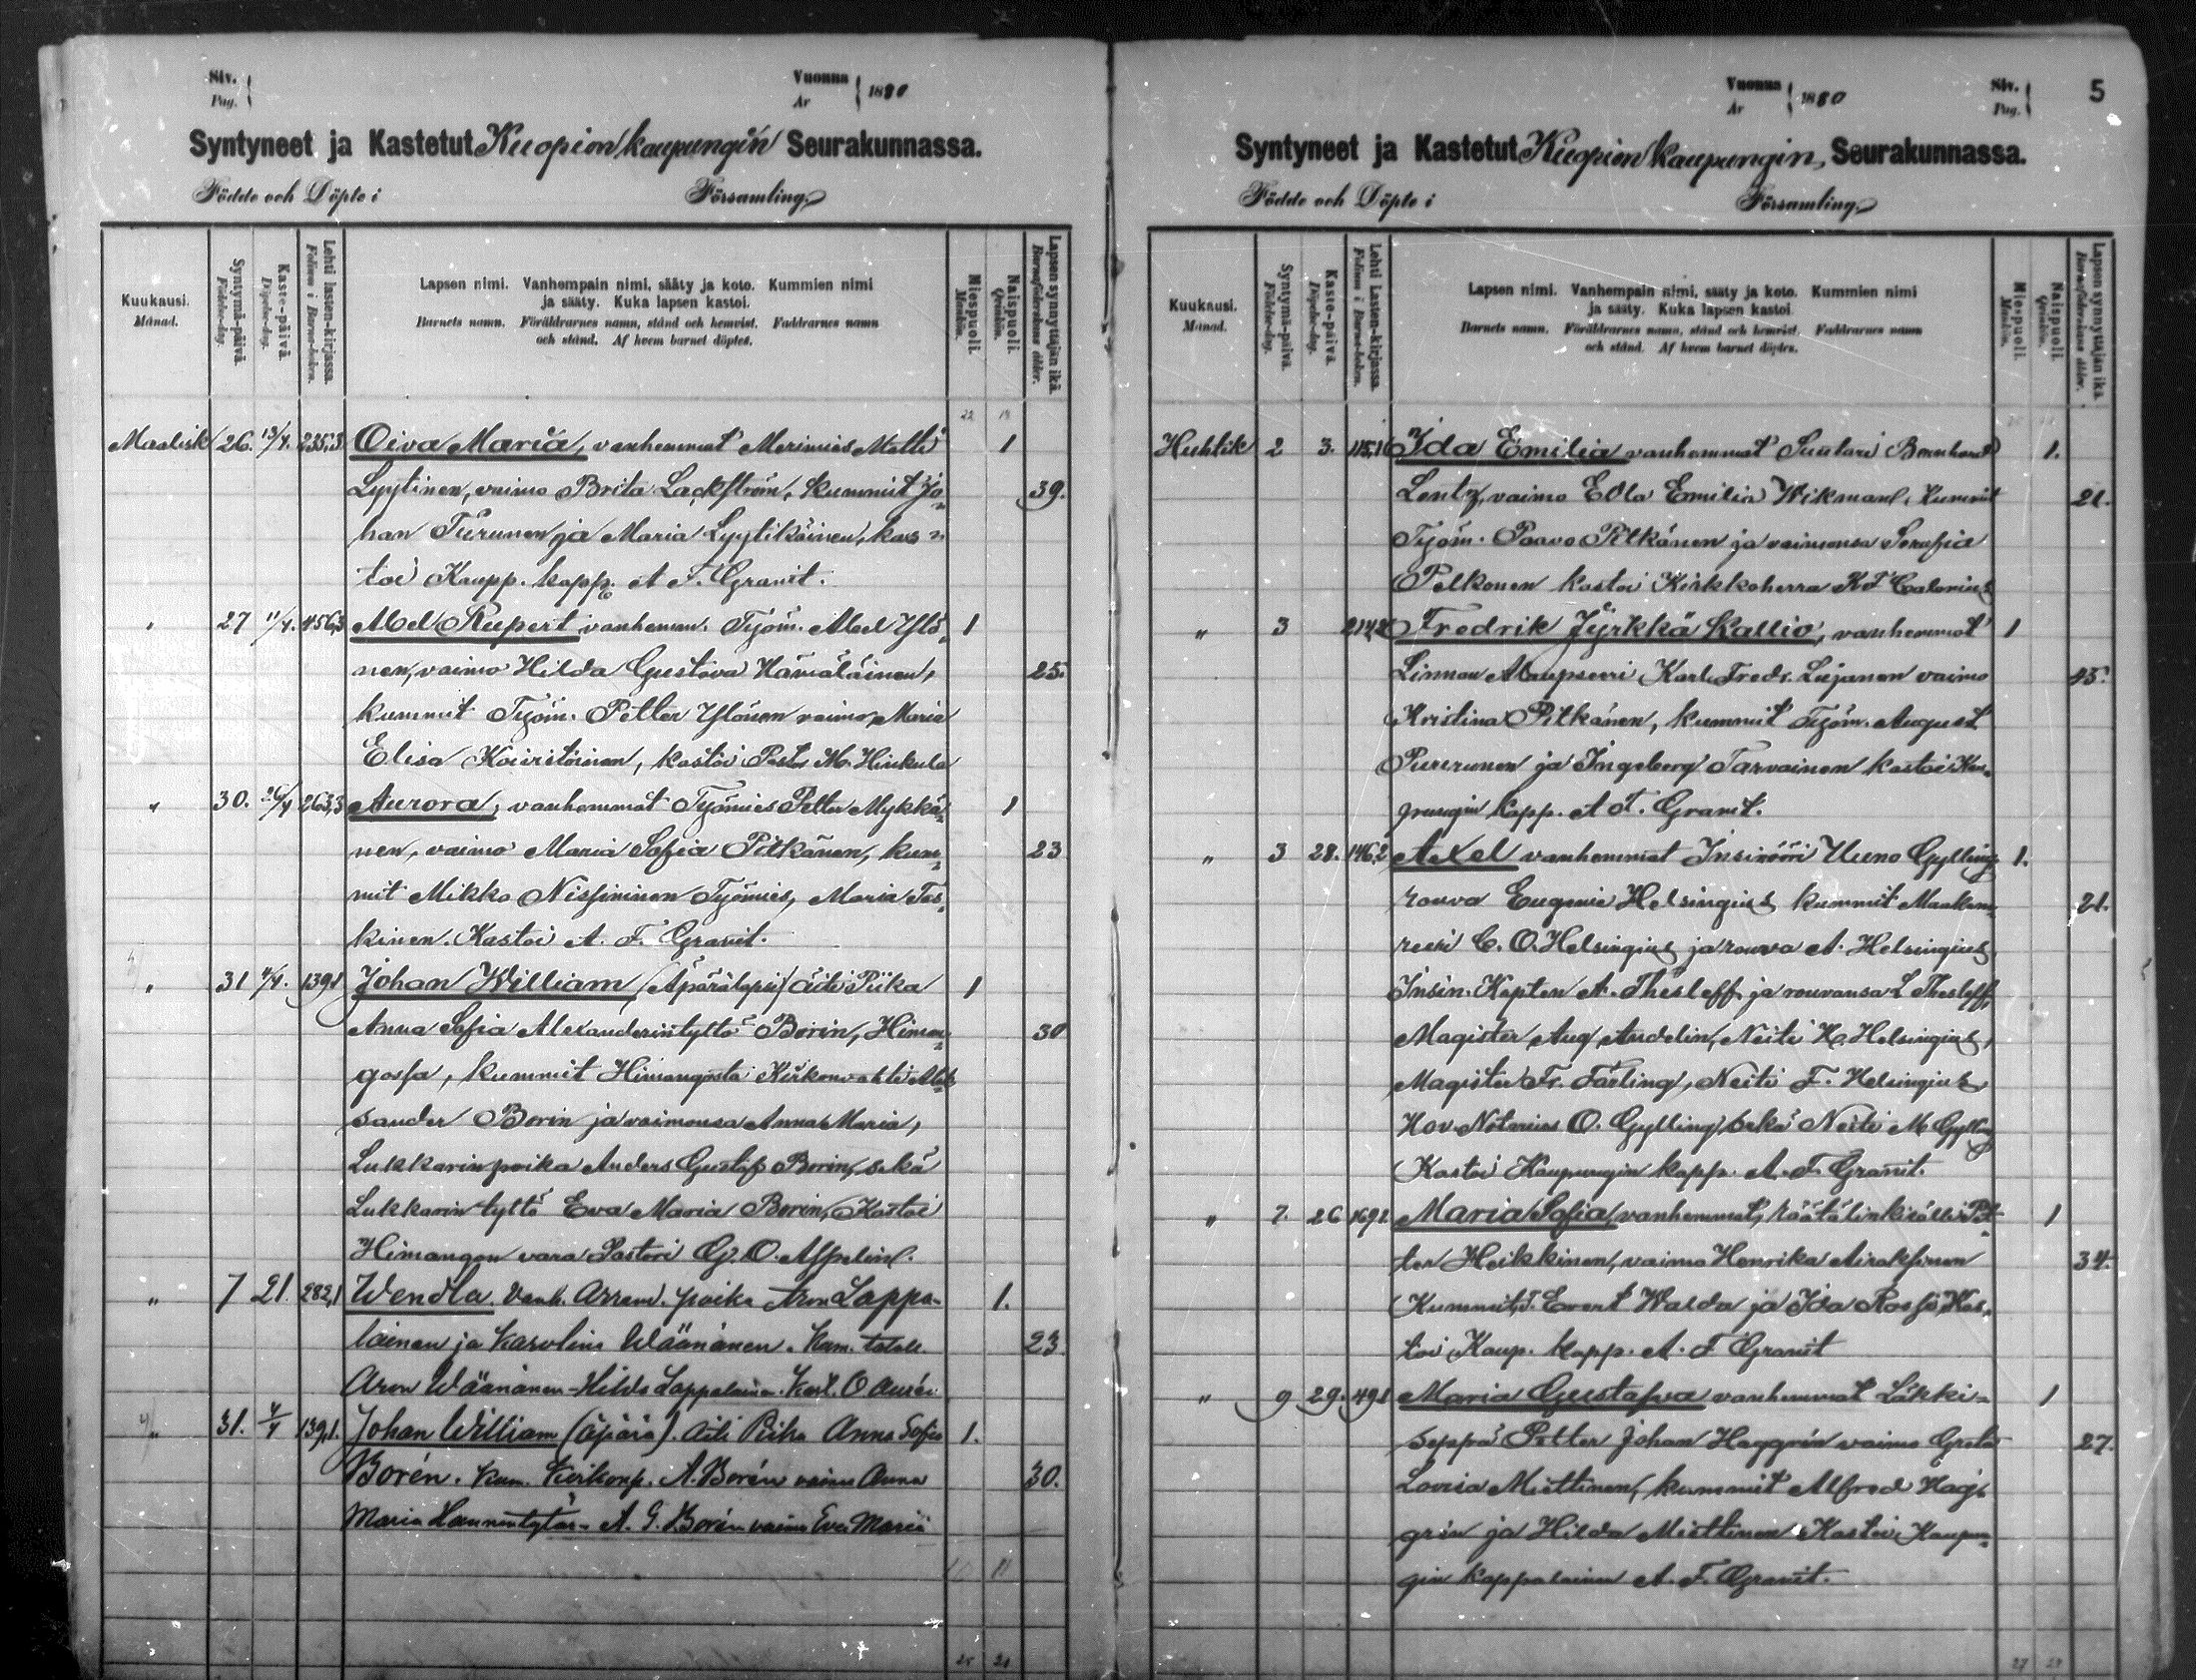 Siv.
Pag.
Vuonna
År
1880
Syntyneet ja Kastetut Kuopion kaupungin Seurakunnassa.
Födde och Döpte i Församling.
Kuukausi.
Månad.
Syntymä-päivä.
Födelse-dag.
Kaste-päivä.
Döpelse-dag.
Lehti lasten-kirjassa.
Folium i Barna-boken.
Lapsen nimi. Vanhempain nimi, sääty ja koto. Kummien nimi
ja sääty. Kuka lapsen kastoi.
Barnets namn. Föräldrarnes namn, stånd och hemvist. Faddrarnes namn
och stånd. Af hvem barnet döptes.
Miespuoli.
Mankön.
Naispuoli.
Qvinkön.
Lapsen synnyttäjän ikä.
Barnaföderskans ålder.
22 19
Maalisk 26. 13/4. 235,3 Oiva Maria, vanhemmat Merimies Matti 1
Lyytinen, vaimo Brita Lackström, Kummit Jo- 39.
han Turunen ja Maria Lyytikäinen, kas-
toi Kaupp. kapp. A F. Granit.
" 27 11/4. 456,3 Abel Rupert vanhemm. Työm. Abel Ylö- 1
nen, vaimo Hilda Gustava Hämäläinen, 25.
kummit Työm. Petter Ylönen vaimo, Maria
Elisa Koiristoinen, kastoi Past. M. Hinkula
" 30. 26/4 263,3 Aurora, vanhemmat Työmies Petter Mykkä- 1
nen, vaimo Maria Sofia Pitkänen, kum- 23
mit Mikko Nissininen Työmies, Maria Tos-
kinen. Kastoi A. F. Granit.
" 31 4/4. 139,1 Johan William (Äpärälapsi) äiti Piika 1
Anna Sofia Alexanderintyttö Borin, Himan- 30
gossa, kummit Himangosta Kirkonvahti Alek-
sander Borin ja vaimonsa Anna Maria,
Lukkarinpoika Anders Gustaf Borin, sekä
Lukkarin tyttö Eva Maria Borin, Kastoi
Himangon vara Pastori G. O. Aspelin.
" 7 21. 282,1 Wendla. Vanh. Arrend. poika Aron Lappa- 1.
lainen ja Karolina Wäänänen. Kum. taloll. 23
Aron Wäänänen - Hilda Lappalainen. Kast. O Aurén.
" 31. 4/4 139,1. Johan William (äpärä). Äiti Piika Anna Sofia 1.
Borén. Kum. Kirkonp. A. Borén vaimo Anna 30.
Maria Hannuntytär - A. G. Borén vaimo Eva Maria
10 11
25 21
Vuonna
År
1880
Siv.
Pag.
5
Syntyneet ja Kastetut Kuopion kaupungin Seurakunnassa.
Födde och Döpte i Församling.
Kuukausi.
Månad.
Syntymä-päivä.
Födelse-dag.
Kaste-päivä.
Döpelse-dag.
Lehti Lasten-kirjassa.
Folium i Barna-boken.
Lapsen nimi. Vanhempain nimi, sääty ja koto. Kummien nimi
ja sääty. Kuka lapsen kastoi.
Barnets namn. Föräldrarnes namn, stånd och hemvist. Faddrarnes namn
och stånd. Af hvem barnet döptes.
Miespuoli.
Mankön.
Naispuoli.
Qvinkön.
Lapsen synnyttäjän ikä.
Barnaföderskans ålder.
Huhtik 2 3. 115,1 Ida Emilia vanhemmat Suutari Bernhard 1.
Lentz, vaimo Edla Emilia Wikman, Kummit 21.
Työm. Paavo Pitkänen ja vaimonsa Serafia
Pelkonen kastoi Kirkkoherra K F Calonius
" 3 214,2 Fredrik Jyrkkä Kallio, vanhemmat 1
Linnan Alaupseeri Karl Fredr. Lujanen vaimo 45.
Kristina Pitkänen, kummit Työm. August
Pururunen ja Ingeborg Tarvainen kastoi Kau-
pungin kapp. A F. Granit.
" 3 28. 146,2 Axel vanhemmat Insinööri Uuno Gylling, 1.
rouva Eugenie Helsingius kummit Maakam-
reeri C. O. Helsingius ja rouva A. Helsingius
Insin. Kapten A. Thesleff ja rouvansa L Thesleff,
Magister Aug. Andelin, Neiti H. Helsingius,
Magister Fr. Färling, Neiti F. Helsingius
Hov. Notarius O. Gylling, sekä Neiti M Gylling
Kastoi Kaupungin kapp. A. F. Granit.
" 7. 26 169,2 Maria Sofia, vanhemmat, räätälinkisälli Pet- 1
ter Heikkinen, vaimo Henrika Airaksinen 34.
Kummit, T. Evert Walda ja Ida Rossi, Kas-
toi Kaup. kapp. A. F Granit
" 9 29. 49,1 Maria Gustafva vanhemmat Läkki- 1
seppä Petter Johan Haggrén vaimo Greta 27.
Lovisa Miettinen, kummit Alfred Hag-
grén ja Hilda Miettinen Kastoi Kaupun-
gin kappalainen A. F. Granit.
27 24